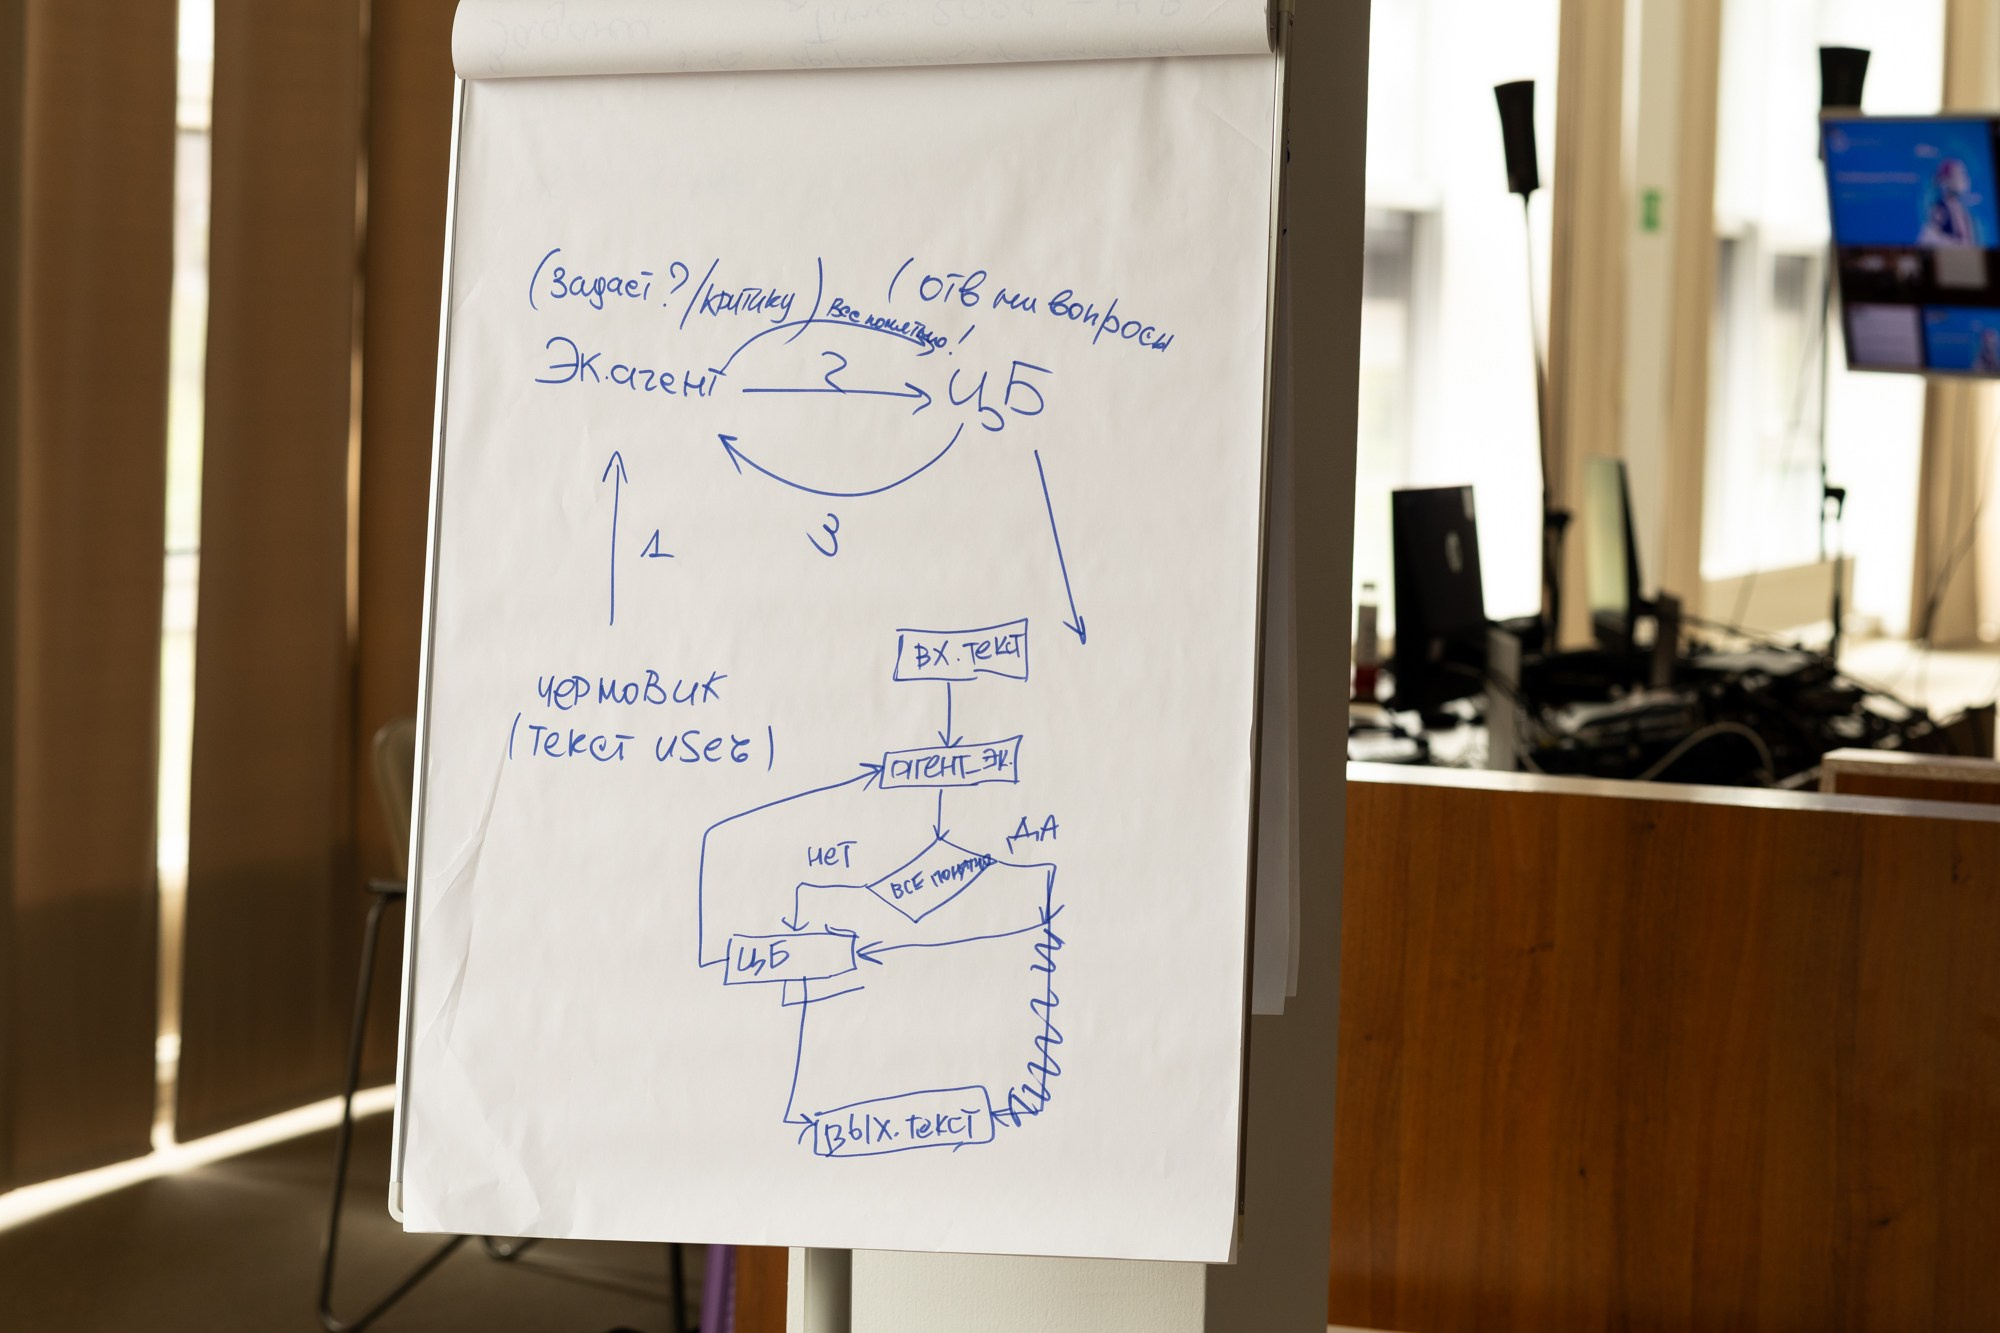 (Задаёт ?/критику)
(отв на вопросы
Все понятно!
Эк.агент
2
ЦБ
3
1
черновик
(текст user)
вх.текст
агент_эк.
нет
ДА
все понятно
ЦБ
вых.текст